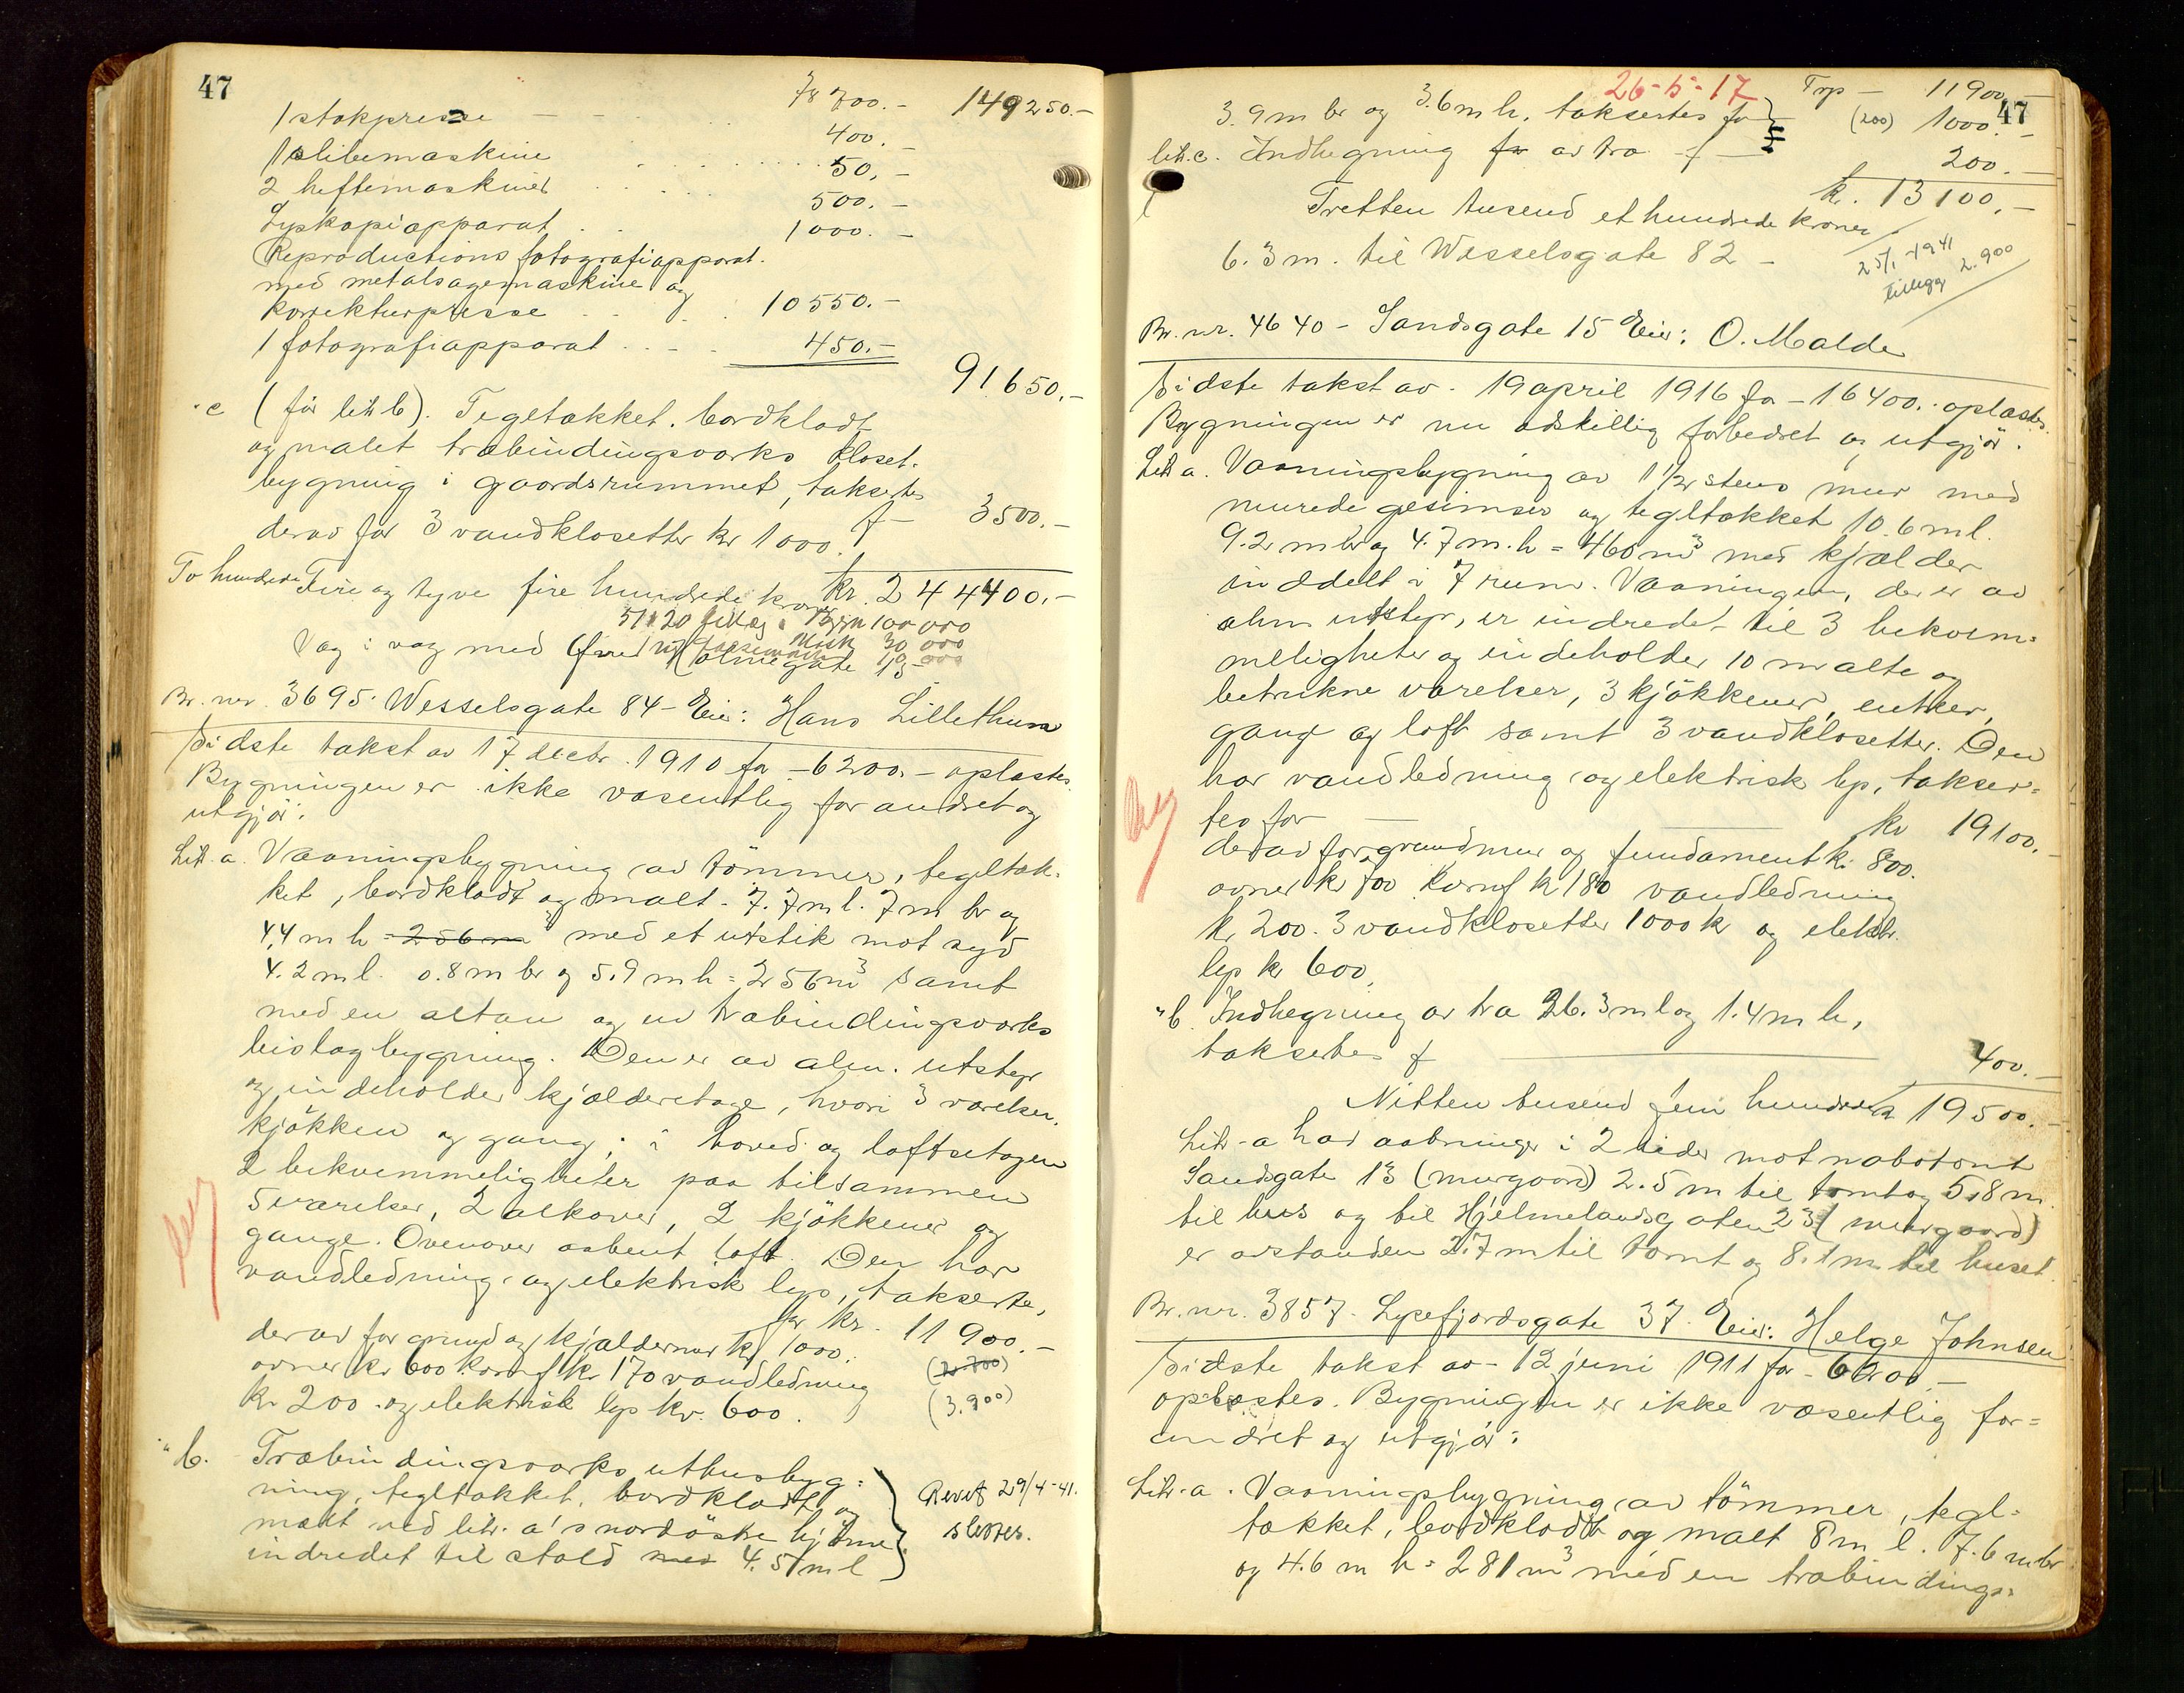 47
78 700.- 149250.-
1 stokpresse - - 400.-
1 slibemaskine 50.-
2 heftemaskiner 500.-
Lyskopiapparat 1000.-
Reproductions fotografiapparat.
med metalsagemaskine og
korrekturpresse 10550.-
1 fotografiapparat 450.-
91650.-
"c (før litr b). Tegltækket. bordklædt
og malet træbindingsværks kloset-
bygning i gaardsrummet, takseres
f- 3500.-
derav for 3 vandklosetter kr 1000.
kr. 244400.-
To hundrede Fire og tyve fire hundrede kroner
Bygn 100000
Mask 30 000
15-000
Væg i væg med Holmegate
Br. nr. 3695. Wesselsgate 84 - Eier: Hans Lillethun
Sidste takst av 17 decbr. 1910 for -6200.- oplæstes.
Bygningen er ikke væsentlig forandret og
utgjør:
Litr. a. Vaaningsbygning av tømmer, tegltæk-
ket, bordklædt og malt. 7.7 m l. 7 m br og
4,4 m h = 256 m³ med et utstik mot syd
4.2 m l. 0.8 m br og 5.9 m h = 256 m³ samt
med en altan og en træbindingsværks
bislagbygning. Den er av alm. utstyr
og indeholder kjælderetage, hvori 3 værelser.
kjøkken og gang; i hoved og loftsetagen
2 bekvemmeligheter paa tilsammen
5 værelser, 2 alkover, 2 kjøkkener og
gange. Ovenover aabent loft. Den har
vandledning og elektrisk lys, takseres,
for kr. 11900.-
derav for grund og kjældermur kr 1000.
(2.700)
ovner kr 600 komf kr 170 vandledning
(3.900)
kr 200 og elektrisk lys kr. 600.
" b. Træbindingsværks uthusbyg-
ning, tegltækket, bordklædt og
malt ved litr. a's nordøstre hjørne
indredet til stald med 4.5 m l
Revet 29/4-41.
slettes.
47
26-5-17
Trp - 11900.-
3.9 m br og 3.6 m h. takseres for (200) 1000.-
litr. c. Indhegning for av træ - f - 200.-
kr. 13100.-
Tretten tusend et hundrede kroner
6.3 m. til Wesselsgate 82 -
25/1-1941
tillegg 2.900
Br. nr. 4640 - Sandsgate 15 Eier: O. Malde
Sidste takst av. 19 april 1916 for - 16400.- oplæstes.
Bygningen er nu adskillig forbedret og utgjør.
Litr a. Vaaningsbygning av 1 1/2 stens mur med
murede gesimser og tegltækket 10.6 m l.
9.2 m br og 4.7 m. h = 460 m³ med kjælder
inddelt i 7 rum. Vaaningen, der er av
alm utstyr, er indredet til 3 bekvem-
meligheter og indeholder 10 malte og
betrukne værelser, 3 kjøkkener, entreer,
gang og loft samt 3 vandklosetter. Den
har vandledning og elektrisk lys, takser-
tes for kr 19100.-
derav for grundmur og fundament kr 800.
ovner kr 700 komf kr 180 vandledning
kr 200. 3 vandklosetter 1000 kr og elektr.
lys kr 600.
" b. Indhegning av træ 26.3 m l og 1.4 m h.
takseres f 400.-
Nitten tusend fem hundrede 19500.-
Litr-a har aabninger i 2 sider mot nabotomt
Sandsgate 13 (murgaard) 2.5 m til tomt og 5.8 m
til hus og til Hjelmelandsgaten 23 (murgaard)
er avstanden 2.7 m til tomt og 8.1 m til huset.
Br. nr. 3857. Lysefjordsgate 37. Eier: Helge Johnsen
Sidste takst av - 12 juni 1911 for - 6200.-
oplæstes. Bygningen er ikke væsentlig for-
andret og utgjør:
Litr-a. Vaaningsbygning av tømmer, tegl-
tækket, bordklædt og malt 8 m l. 7.6 m br
og 4.6 m h = 281 m³ med en træbindings-